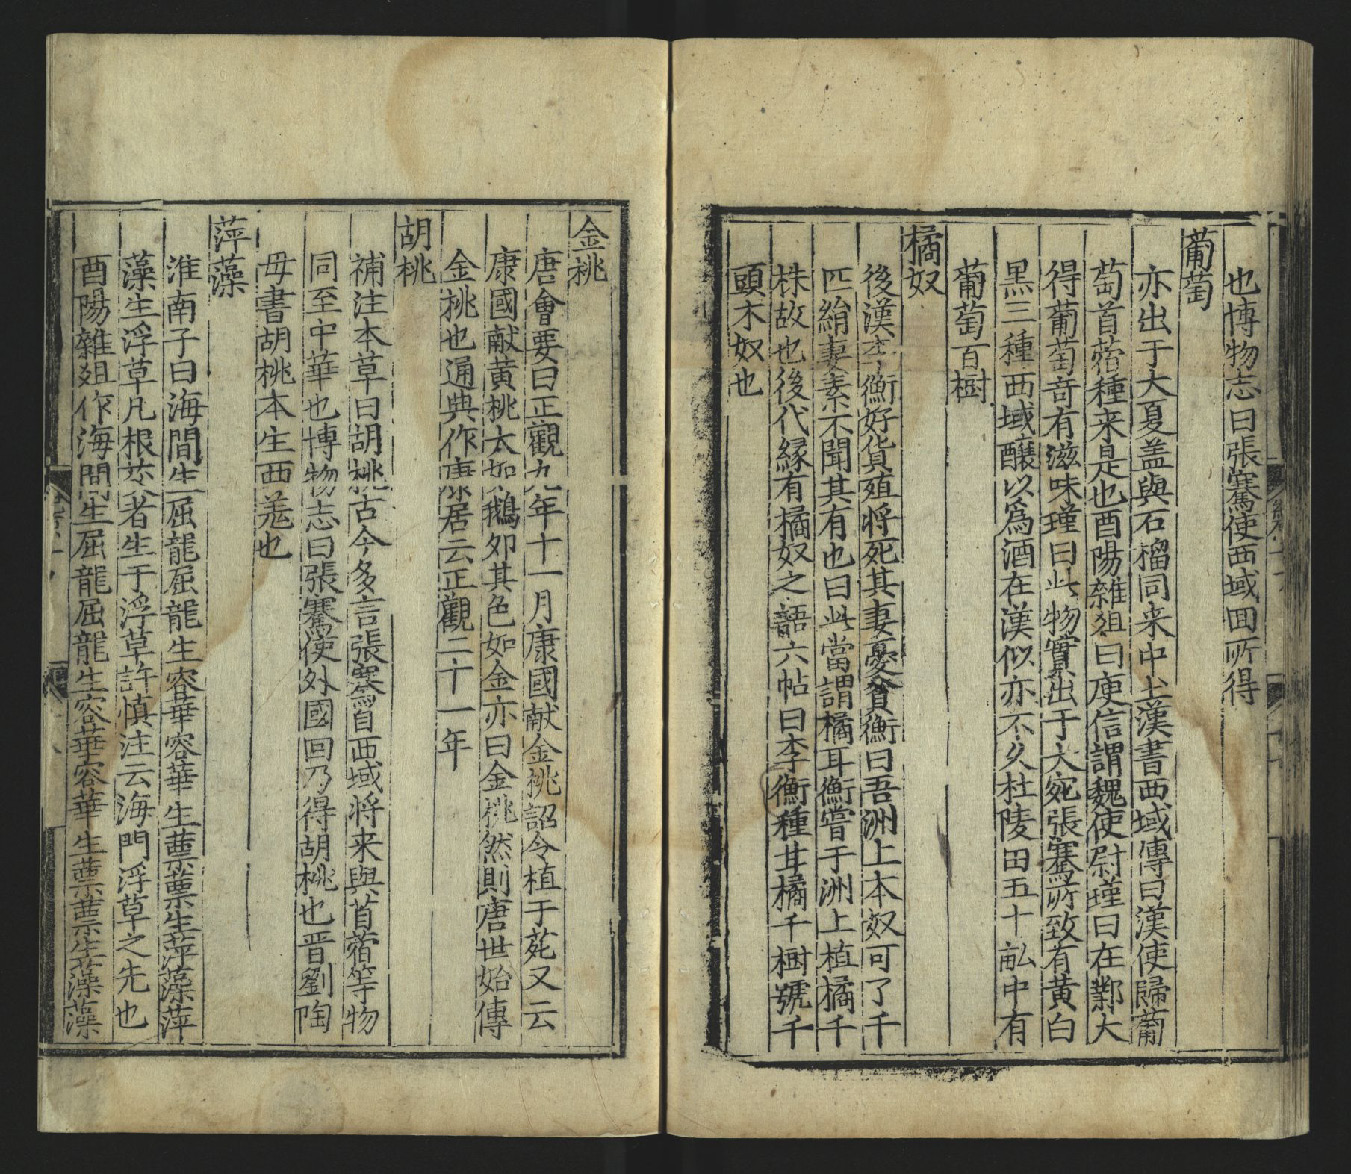 也博物志曰張騫使西域囬所得
葡萄
亦出于大夏盖與石榴同来中土漢書西域傳曰漢使歸葡
萄首蓿種来是也酉陽雜俎曰庾信謂魏使尉瑾曰在鄴大
得葡萄奇有滋味瑾曰此物實出于大宛張騫所致有黄白
黒三種西域釀以為酒在漢似亦不久杜陵田五十畝中有
葡萄百樹
橘奴
後漢李衡好貨殖将死其妻憂貧衡曰吾洲上木奴可了千
匹絹妻素不聞其有也曰此當謂橘耳衡嘗于洲上植橘千
株故也後代縁有橘奴之語六帖曰李衡種甘橘千樹號千
頭木奴也
金桃
唐會要曰正觀九年十一月康國献金桃詔令植于苑又云
康國献黄桃大如鵝夘其色如金亦曰金桃然則唐世始傳
金桃也通典作康居云正觀二十一年
胡桃
補注本草曰胡桃古今多言張騫自西域将来與苜蓿等物
同至中華也博物志曰張騫使外國回乃得胡桃也晋劉陶
母書胡桃本生西羗也
萍藻
淮南子曰海間生屈龍屈龍生容華容華生蔈蔈生萍藻萍
藻生浮草凡根茇者生于浮草許慎注云海門浮草之先也
酉陽雜俎作海間生屈龍屈龍生容華容華生蔈蔈生藻藻